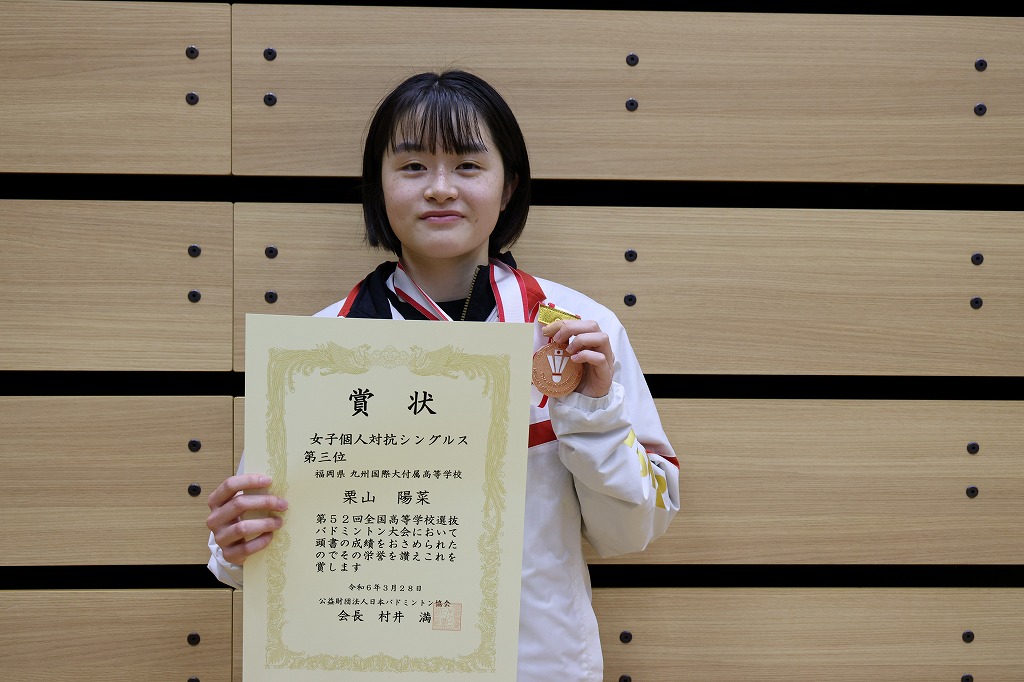 賞 状
女子個人対抗シングルス
第三位
福岡県 九州国際大付属高等学校
栗山 陽菜
第５２回全国高等学校選抜
バドミントン大会において
頭書の成績をおさめられた
のでその栄誉を讃えこれを
賞します
令和６年３月２８日
公益財団法人日本バドミントン協会
会長 村井 満